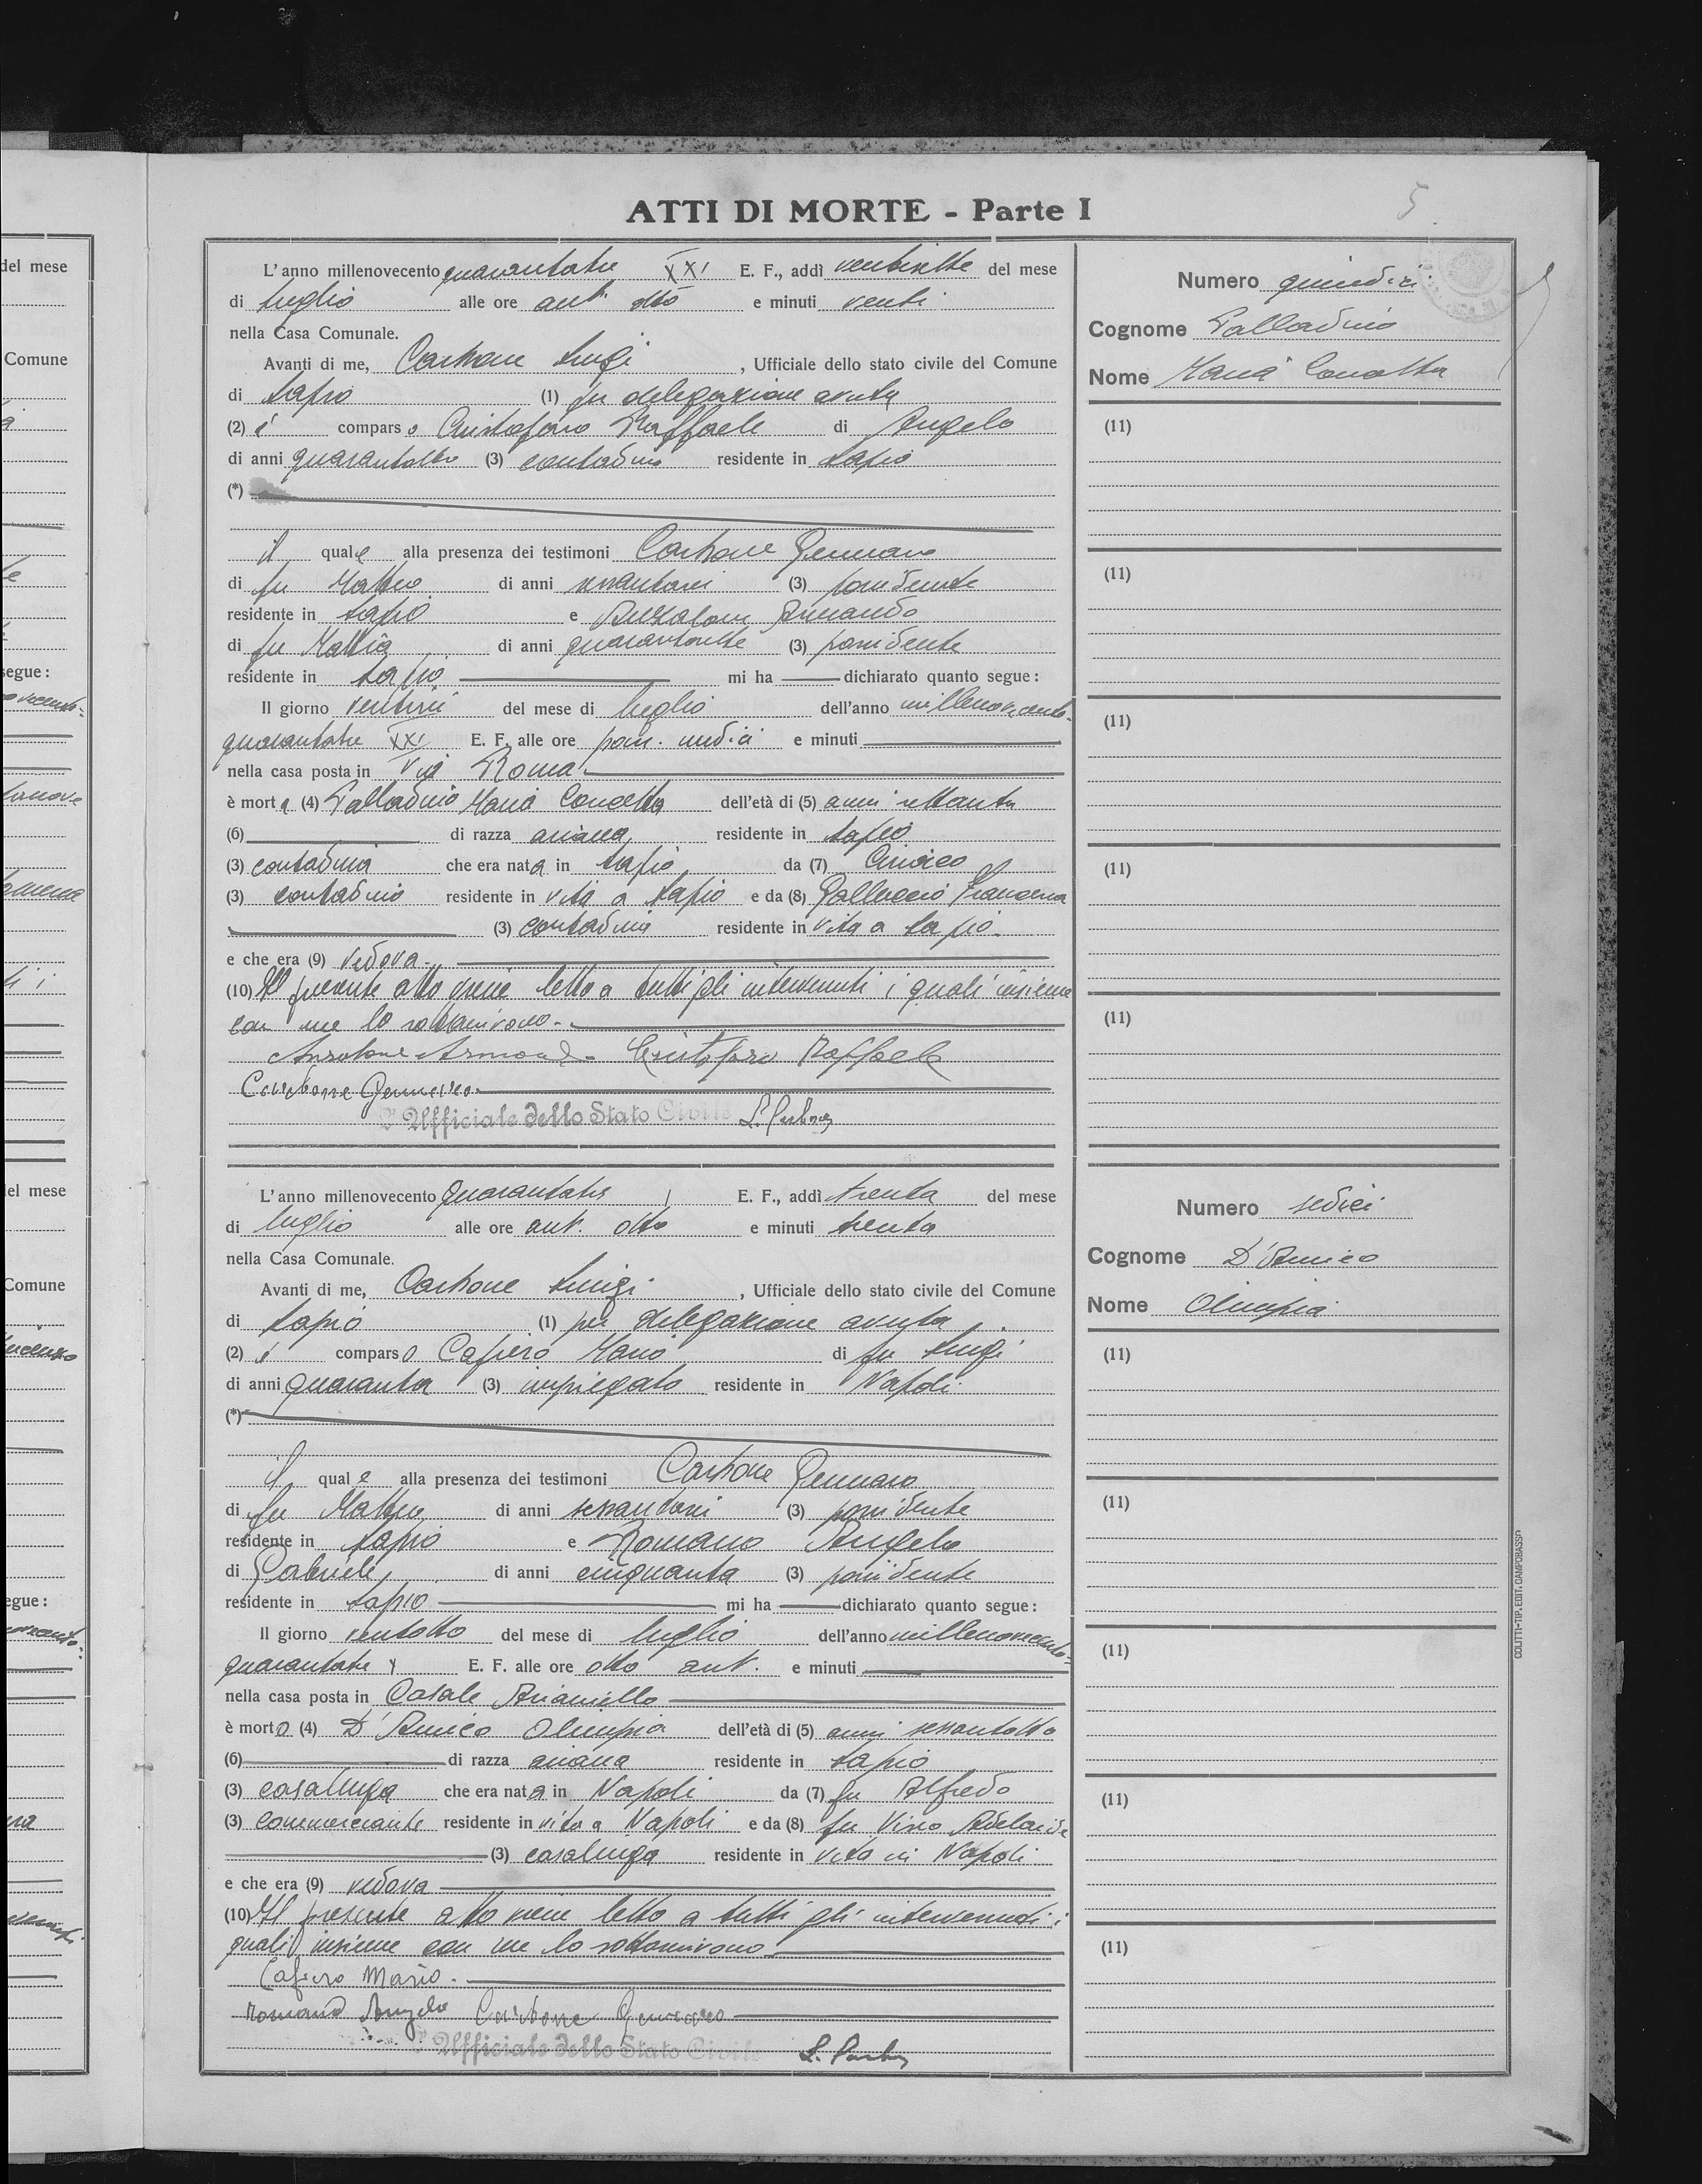 ATTI DI MORTE - Parte I
5
L'anno millenovecento quarantatre XXI E. F., addì ventisette del mese
di luglio alle ore ant. otto e minuti venti
nella Casa Comunale.
Avanti di me, Carbone Luigi, Ufficiale dello stato civile del Comune
di Lapio (1) per delegazione avuta
(2) è comparso Cristofaro Raffaele di Angelo
di anni quarantotto (3) contadino residente in Lapio
(*)
il quale alla presenza dei testimoni Carbone Gennaro
di fu Matteo di anni sessantasei (3) possidente
residente in Lapio e Anzalone Armando
di fu Mattia di anni quarantasette (3) possidente
residente in Lapio mi ha dichiarato quanto segue:
Il giorno ventisei del mese di luglio dell'anno millenovecento-
quarantatre XXI E. F. alle ore pom. undici e minuti
nella casa posta in Via Roma
è morta (4) Palladino Maria Concetta dell'età di (5) anni settanta
(6) di razza ariana residente in Lapio
(3) contadina che era nata in Lapio da (7) Ciriaco
(3) contadino residente in vita a Lapio e da (8) Galluccio Francesca
(3) contadina residente in vita a Lapio
e che era (9) vedova
(10) Il presente atto viene letto a tutti gli intervenuti i quali insieme
con me lo sottoscrivono.
Anzalone Armando Cristofaro Raffaele
Carbone Gennaro
L'Ufficiale dello Stato Civile L. Carbone
Numero quindici
Cognome Palladino
Nome Maria Concetta
(11)
(11)
(11)
(11)
(11)
L'anno millenovecento quarantatre E. F., addì trenta del mese
di luglio alle ore ant. otto e minuti trenta
nella Casa Comunale.
Avanti di me, Carbone Luigi, Ufficiale dello stato civile del Comune
di Lapio (1) per delegazione avuta
(2) è comparso Cafiero Mario di fu Luigi
di anni quaranta (3) impiegato residente in Napoli
(*)
il quale alla presenza dei testimoni Carbone Gennaro
di fu Matteo di anni sessantasei (3) possidente
residente in Lapio e Romano Angelo
di Gabriele di anni cinquanta (3) possidente
residente in Lapio mi ha dichiarato quanto segue:
Il giorno ventotto del mese di luglio dell'anno millenovecento-
quarantatre E. F. alle ore otto ant. e minuti
nella casa posta in Casale Arianiello
è morta (4) D'Amico Olimpia dell'età di (5) anni sessantotto
(6) di razza ariana residente in Lapio
(3) casalinga che era nata in Napoli da (7) fu Alfredo
(3) commerciante residente in vita a Napoli e da (8) fu Adelaide
(3) casalinga residente in vita in Napoli
e che era (9) vedova
(10) Il presente atto viene letto a tutti gli intervenuti i
quali insieme con me lo sottoscrivono
Cafiero Mario.
Romano Angelo Carbone Gennaro
L'Ufficiale dello Stato Civile L. Carbone
Numero sedici
Cognome D'Amico
Nome Olimpia
(11)
(11)
(11)
(11)
(11)
COLITTI-TIP. EDIT. CAMPOBASSO